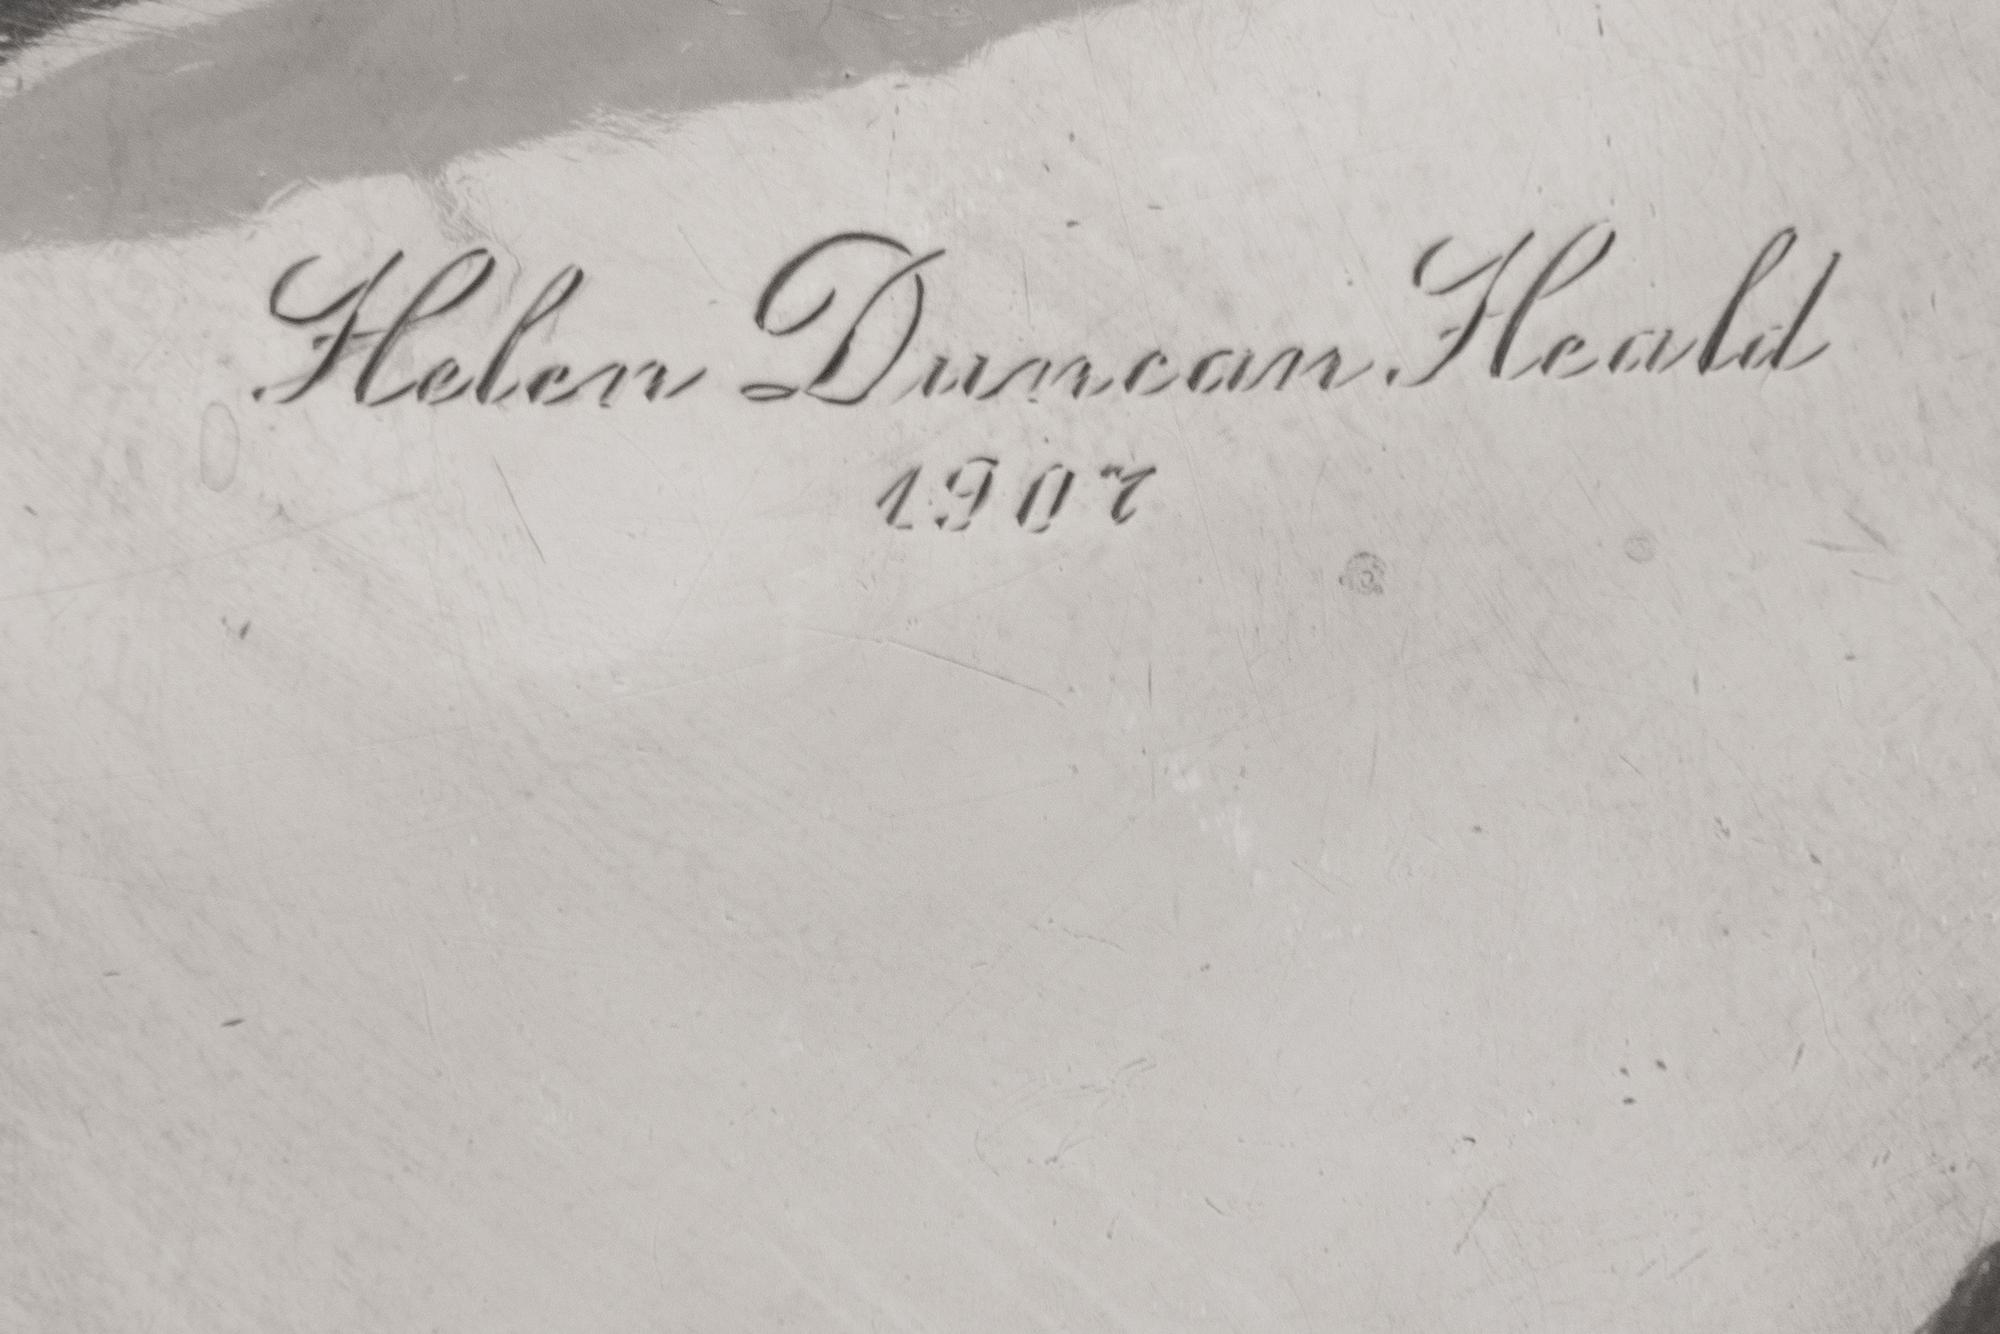 Helen Duncan Heald
1907